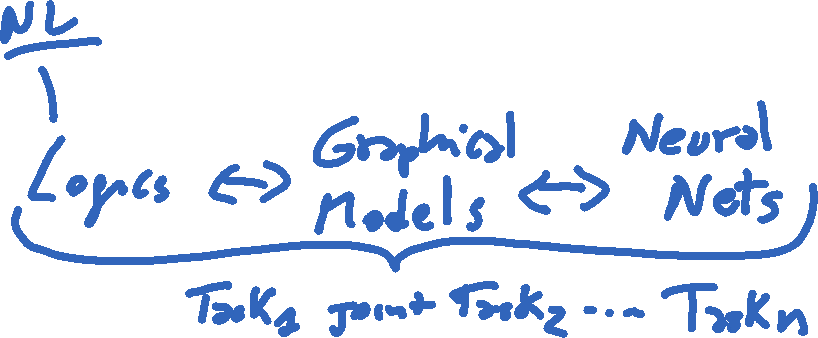 NL
Logics <-> Graphical Models <-> Neural Nets
Task1 joint Task2 .... Taskn